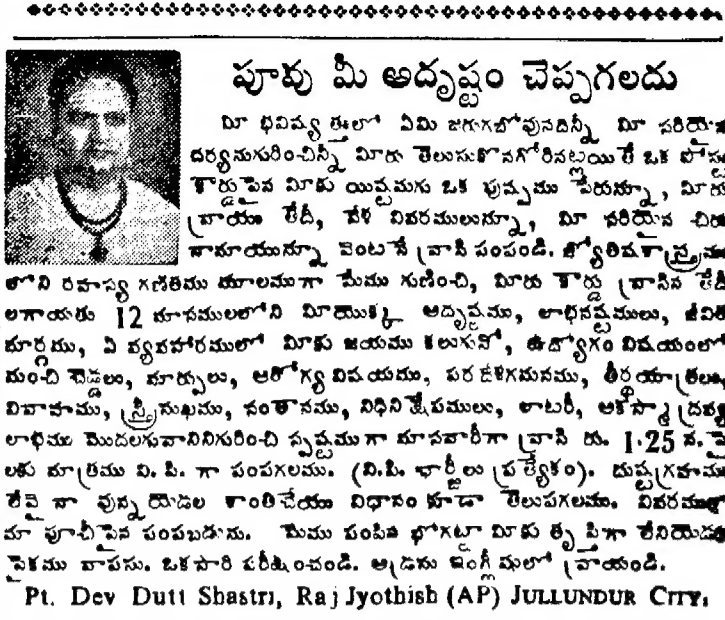 పూవు మీ అదృష్టం చెప్పగలదు
మీ భవిష్యత్తులో ఏమి జరుగబోవునదిన్నీ మీ సరియైన
దర్యనుగురించిన్నీ మీరు తెలుసుకొనగోరినట్లయితే ఒక పోస్టు
కార్డుపైన మీకు యిష్టమగు ఒక పుష్పము పేరున్నూ, మీరు
వ్రాయు తేదీ, వేళ వివరములున్నూ, మీ సరియైన చిరు
నామాయున్నూ వెంటనే వ్రాసి పంపండి. జ్యోతిషశాస్త్రము
లోని రహస్య గణితము మూలముగా మేము గుణించి, మీరు కార్డు వ్రాసిన తేదీ
లగాయతు 12 మాసములలోని మీయొక్క అదృష్టము, లాభనష్టములు, జీవిత
మార్గము, ఏ వ్యవహారములో మీకు జయము కలుగునో, ఉద్యోగం విషయంలో
మంచి చెడ్డలు, మార్పులు, ఆరోగ్య విషయము, పరదేశగమనము, తీర్థయాత్రలు,
వివాహము, స్త్రీసుఖము, సంతానము, నిధినిక్షేపములు, లాటరీ, ఆకస్మాద్రవ్య
లాభము మొదలగువానినిగురించి స్పష్టముగా మాసవారీగా వ్రాసి రు. 1-25 న. పై
లకు మాత్రము వి. పి. గా పంపగలము. (వి.పి. ఛార్జీలు ప్రత్యేకం). దుష్టగ్రహము
లేవైనా వున్నయెడల శాంతిచేయు విధానం కూడా తెలుపగలము. వివరములు
మా పూచీపైన పంపబడును. మేము పంపిన భోగట్టా మీకు తృప్తిగా లేనియెడల
పైకము వాపసు. ఒకసారి పరీక్షించండి. అడ్రసు ఇంగ్లీషులో వ్రాయండి.
Pt. Dev Dutt Shastri, Raj Jyothish (AP) JULLUNDUR CITY.